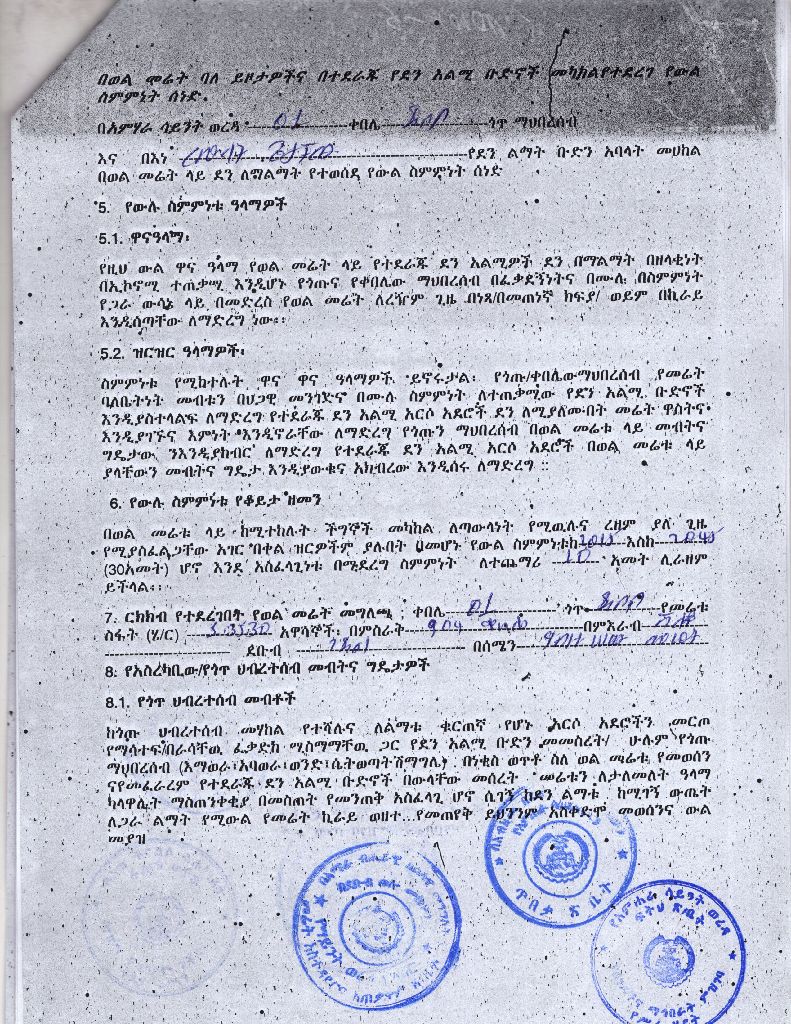 በወል መሬት ባለ ይዞታዎችና በተደራጁ የደን አልሚ ቡድኖች መካከልየተደረገ የውል
ስምምነት ሰነድ.
በአምሃራ ሳይንት ወረዳ 01 ቀበሌ ጎጥ ማህበረሰብ
እና በእነ የደን ልማት ቡድን አባላት መሀከል
በወል መሬት ላይ ደን ለማልማት የተወሰደ የውል ስምምነት ሰነድ
5. የውሉ ስምምነቱ ዓላማዎች
5.1. ዋናዓላማ፡
የዚህ ውል ዋና ዓላማ የወል መሬት ላይ የተደራጁ ደን አልሚዎች ደን በማልማት በዘላቂነት
በኢኮኖሚ ተጠቃሚ እንዲሆኑ የጎጡና የቀበሌው ማህበረሰብ በፈቃደኝነትና በሙሉ በስምምነት
የጋራ ውሳኔ ላይ በመድረስ የወል መሬት ለረዥም ጊዜ በነጻ/በመጠነኛ ክፍያ/ ወይም በኪራይ
እንዲሰጣቸው ለማድረግ ነው፡፡
5.2. ዝርዝር ዓላማዎች፡
ስምምነቱ የሚከተሉት ዋና ዋና ዓላማዎች ይኖሩታል፡ የጎጡ/ቀበሌውማህበረሰብ የመሬት
ባለቤትነት መብቱን በህጋዊ መንገድና በሙሉ ስምምነት ለተጠቃሚው የደን አልሚ ቡድኖች
እንዲያስተላልፍ ለማድረግ የተደራጁ ደን አልሚ አርሶ አደሮች ደን ለሚያለሙበት መሬት ዋስትና
እንዲያገኙና እምነት እንዲኖራቸው ለማድረግ የጎጡን ማህበረሰብ በወል መሬቱ ላይ መብትና
ግዴታው ንእንዲያከብር ለማድረግ የተደራጁ ደን አልሚ አርሶ አደሮች በወል መሬቱ ላይ
ያላቸውን መብትና ግዴታ እንዲያውቁና አክብረው እንዲሰሩ ለማድረግ ፡፡
6. የውሉ ስምምነቱ የቆይታ ዘመን
በወል መሬቱ ላይ ከሚተከሉት ችግኞች መካከል ለጣውላነት የሚዉሉና ረዘም ያለ ጊዜ
የሚያስፈልጋቸው አገር በቀል ዝርዎችም ያሉበት በመሆኑ የውል ስምምነቱከ 2015 እስከ 2045
(30አመት) ሆኖ እንደ አስፈላጊነቱ በሚደረግ ስምምነት ለተጨማሪ 10 አመት ሊራዘም
ይችላል፡፡
7. ርክክብ የተደረገበት የወል መሬት መግለጫ ፡ ቀበሌ 01 ጎጥ የመሬቱ
ስፋት (ሄ/ር) 3.3530 አዋሳኞች፡ በምስራቅ በምእራብ
ደቡብ በሰሜን
8. የአስረካቢው/የጎጥ ህብረተሰብ መብትና ግዴታዎች
8.1. የጎጥ ህብረተሰብ መብቶች
ከጎጡ ህብረተሰብ መሃከል የተሻሉና ለልማቱ ቁርጠኛ የሆኑ አርሶ አደሮችን መርጦ
የማሳተፍ/በራሳቸዉ ፈቃድከ ሚስማማቸዉ ጋር የደን አልሚ ቡድን መመስረት/ ሁሉም የጎጡ
ማህበረሰብ (እማወራ፣አባወራ፣ወንድ፣ሴትወጣትሽማግሌ) በነቂስ ወጥቶ ስለ ወል መሬቱ የመወሰን
ናየመፈራረም የተደራጁ ደን አልሚ ቡድኖች በውላቸው መሰረት መሬቱን ለታለመለት ዓላማ
ካላዋሏት ማስጠንቀቂያ በመስጠት የመንጠቅ አስፈላጊ ሆኖ ሲገኝ ከደን ልማቱ ከሚገኝ ውጤት
ለጋራ ልማት የሚውል የመሬት ኪራይ ወዘተ የመጠየቅ ይህንንም አስቀድሞ መወሰንና ውል
መያዝ
ጥበቃ ጽ ቤት
የአምሐራ ሳይንት ወረዳ
ፍትህ ጽ/ቤት